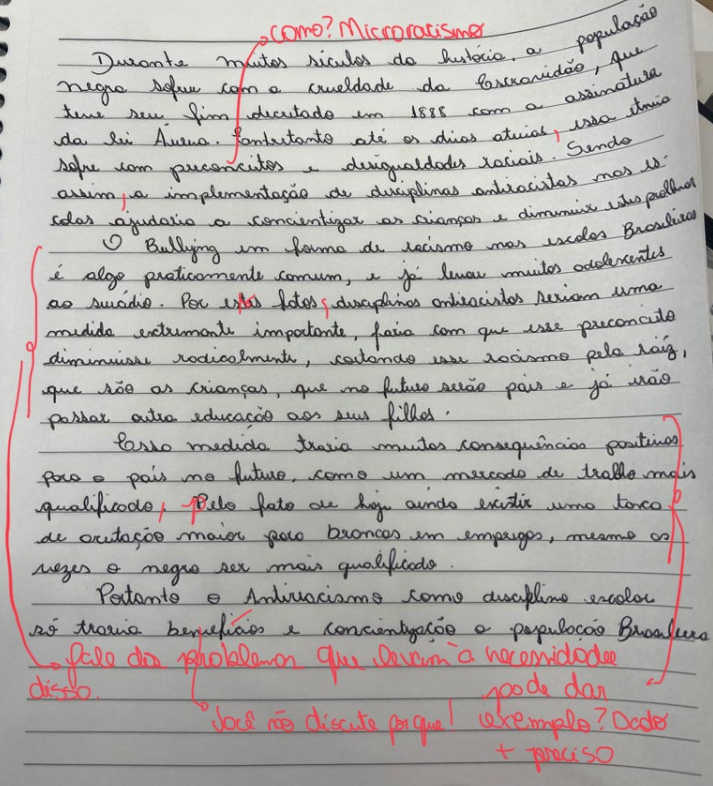 como? Microracismo
Durante muitos séculos da história, a população
negra sofreu com a crueldade da Escravidão, que
teve seu fim decretado em 1888 com a assinatura
da lei Áurea. Contudo até os dias atuais, essa etnia
sofre com preconceitos e desigualdades raciais. Sendo
assim, a implementação de disciplinas antiracistas nas es-
colas ajudaria a concientizar as crianças e diminuir estes problemas
O Bullying em forma de racismo nas escolas Brasileiras
é algo praticamente comum, e já levou muitos adolescentes
ao suicídio. Por estes fatos, disciplinas antiracistas seriam uma
medida extrimante importante, faria com que esse preconceito
diminuisse radicalmente, cortando esse racismo pela raíz,
que são as crianças, que no futuro serão pais e já irão
passar outra educação aos seus filhos.
Essa medida traria muitas consequências positivas
para o país no futuro, como um mercado de trabalho mais
qualificado, pelo fato de hoje ainda existir uma taxa
de aceitação maior para brancos em empregos, mesmo as
vezes o negro ser mais qualificado.
Portanto o Antirracismo como disciplina escolar
só traria benefícios e concientização a população Brasileira
fale dos problemas que levam à necessidade
disso.
pode dar
Você não discute porque! exemplo? Dado
+ preciso